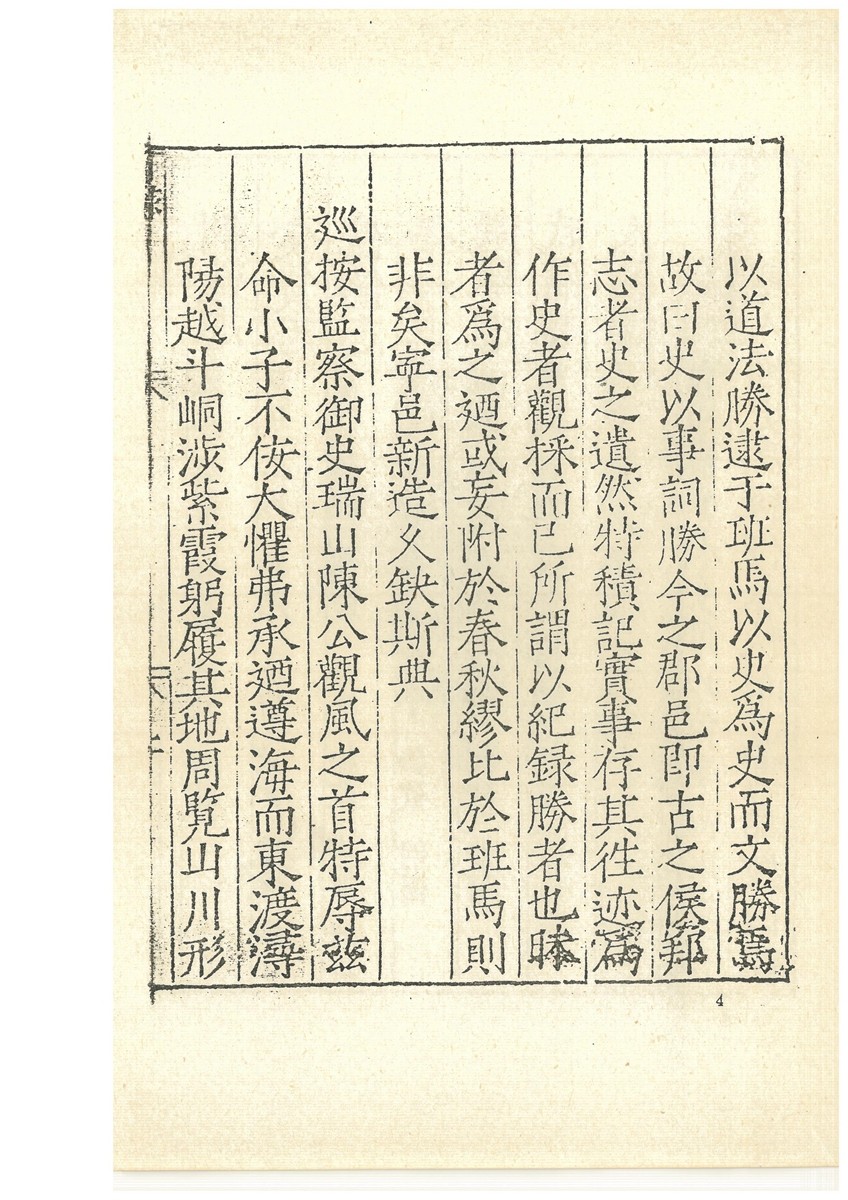 以道法勝逮于班馬以史爲史而文勝焉
故曰史以事詞勝今之郡邑即古之侯邦
志者史之遺然特積記實事存其徃迹爲
作史者觀採而已所謂以紀録勝者也昧
者爲之廼或妄附於春秋繆比於班馬則
非矣寜邑新造久缺斯典
巡按監察御史瑞山陳公觀風之首特辱兹
命小子不佞大懼弗承廼遵海而東渡潯
陽越斗峒涉紫霞躬履其地周覽山川形
4